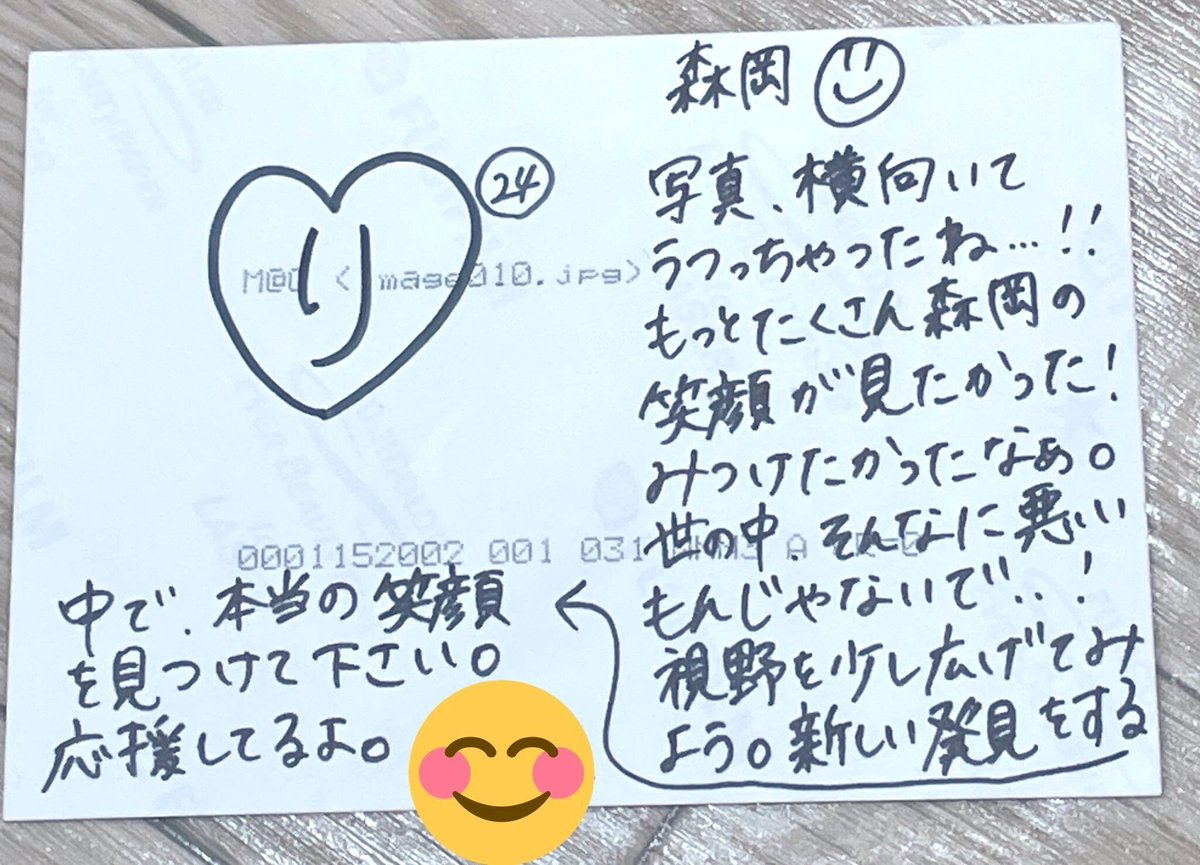 森岡
写真、横向いて
うつっちゃったね…!!
もっとたくさん森岡の
笑顔が見たかった!
みつけたかったなぁ。
世の中、そんなに悪い
もんじゃないで、、!
視野を少し広げてみ
よう。新しい発見をする
中で、本当の笑顔
を見つけて下さい。
応援してるよ。
リ
24
mage010.jpg>
0001152002 001 031